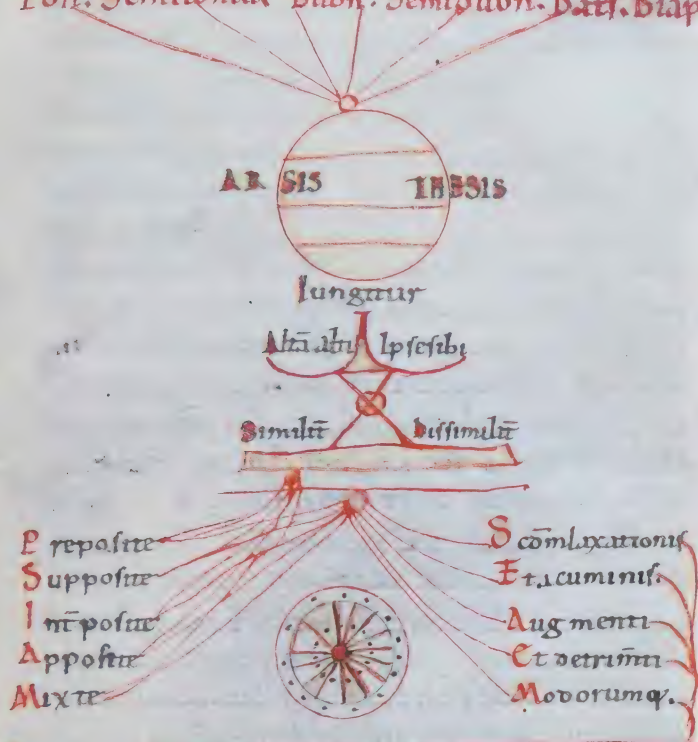 Ton. Semitonius Diton. Semiditon. Diates. Diap
ARSIS THESIS
Iungitur
Altā alti Ipse sibi
Similit̄ Dissimilit̄
Preposite
Supposite
Int̄posite
Apposite
Mixte
S cōmlaxationis
Et acuminis.
Augmenti
Et detrim̄ti
Modorumq.